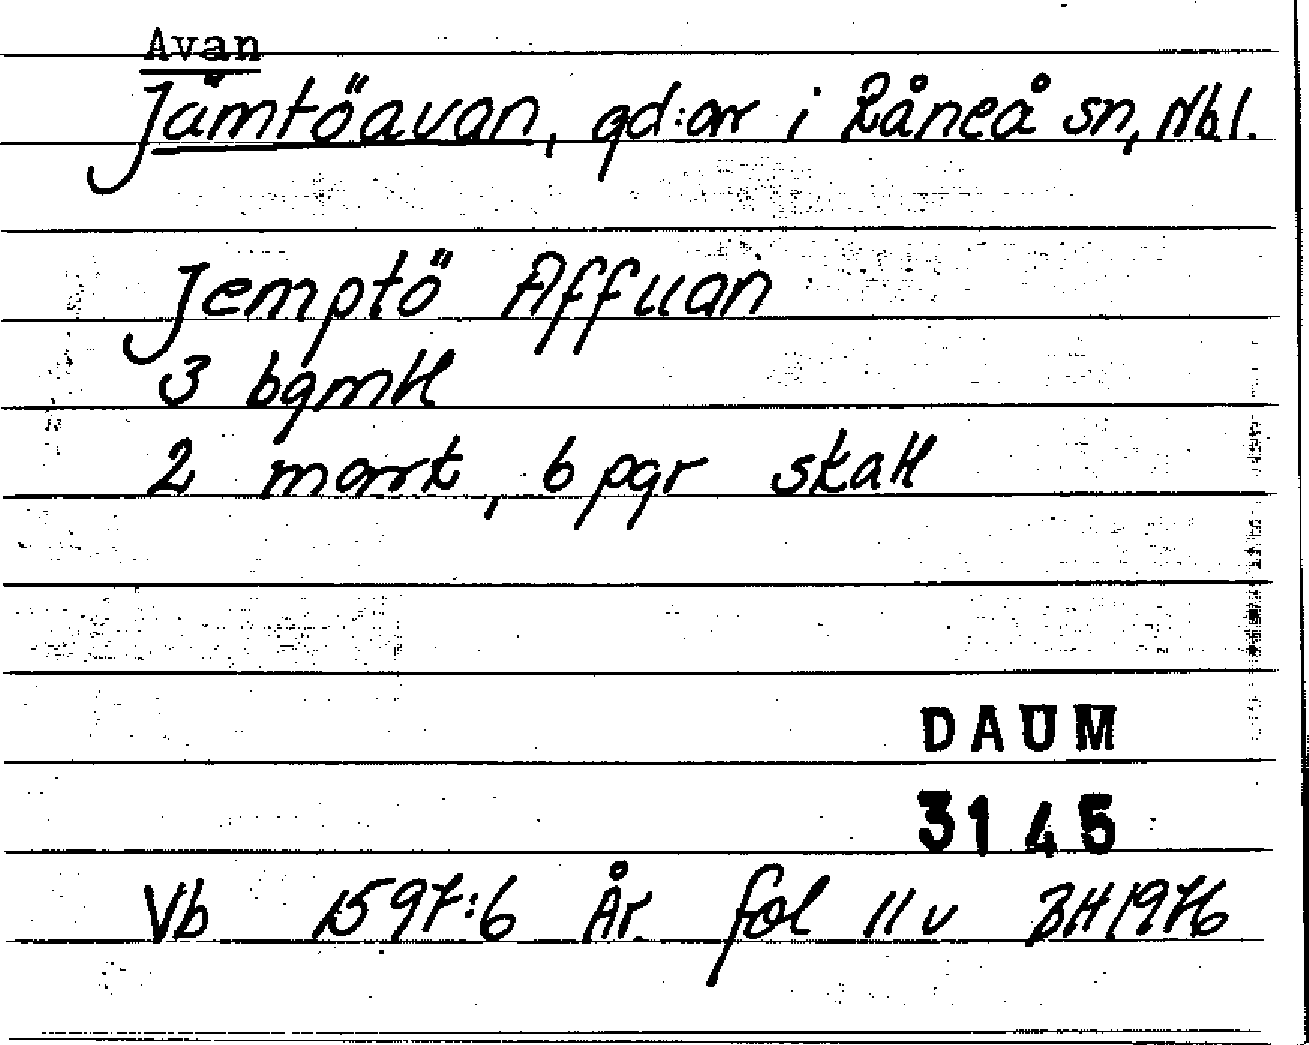 Avan
Jämtöavan, gd:ar i Råneå sn, Nbl.
Jemptö Affuan
3 bgmtl
2 mark, 6 pgr skatt
DAUM
3145
Vb 1597:6 År. fol 11 v BH 1976